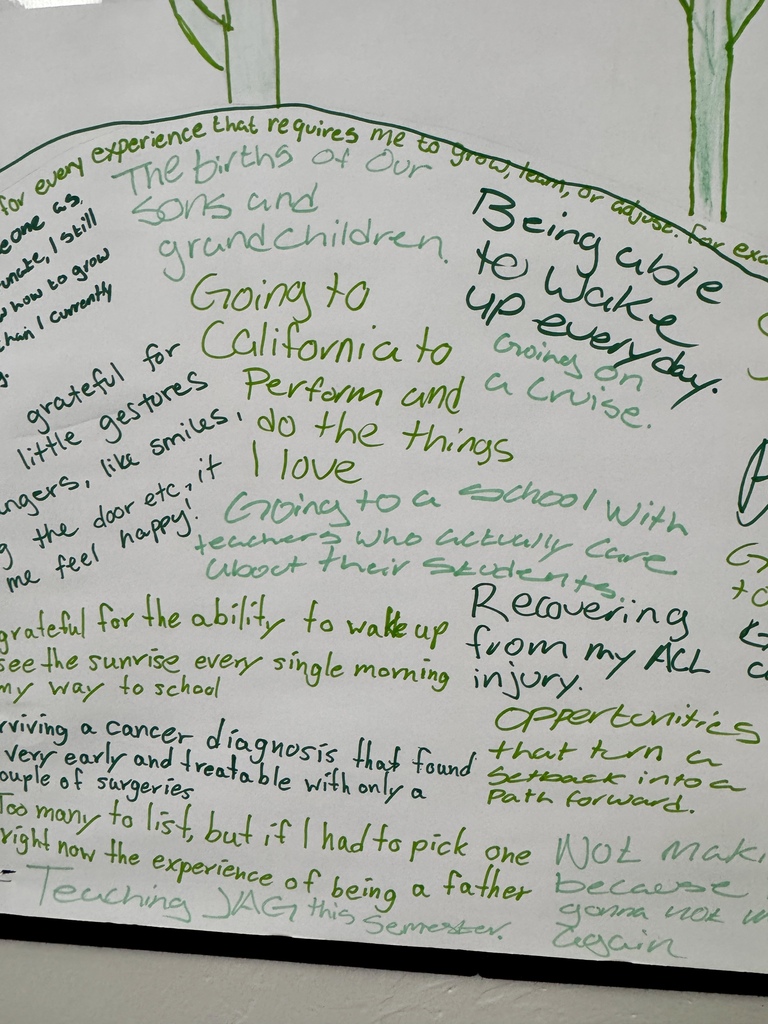 for every experience that requires me to grow, learn, or adjust. For
The births of our
sons and
grandchildren.
as,
I still
how to grow
than I currently
Being able
to wake
up everyday.
Going to
California to
Perform and
do the things
I love
Going on
a cruise.
grateful for
little gestures
like smiles,
the door etc., it
me feel happy!
Going to a school with
teachers who actually care
about their students.
grateful for the ability to wake up
see the sunrise every single morning
my way to school
Recovering
from my ACL
injury.
a cancer diagnosis that found
very early and treatable with only a
surgeries
Opportunities
that turn a
setback into a
Path forward.
Too many to list, but if I had to pick one
right now the experience of being a father
Teaching JAG this semester.
Not
because
gonna not
again